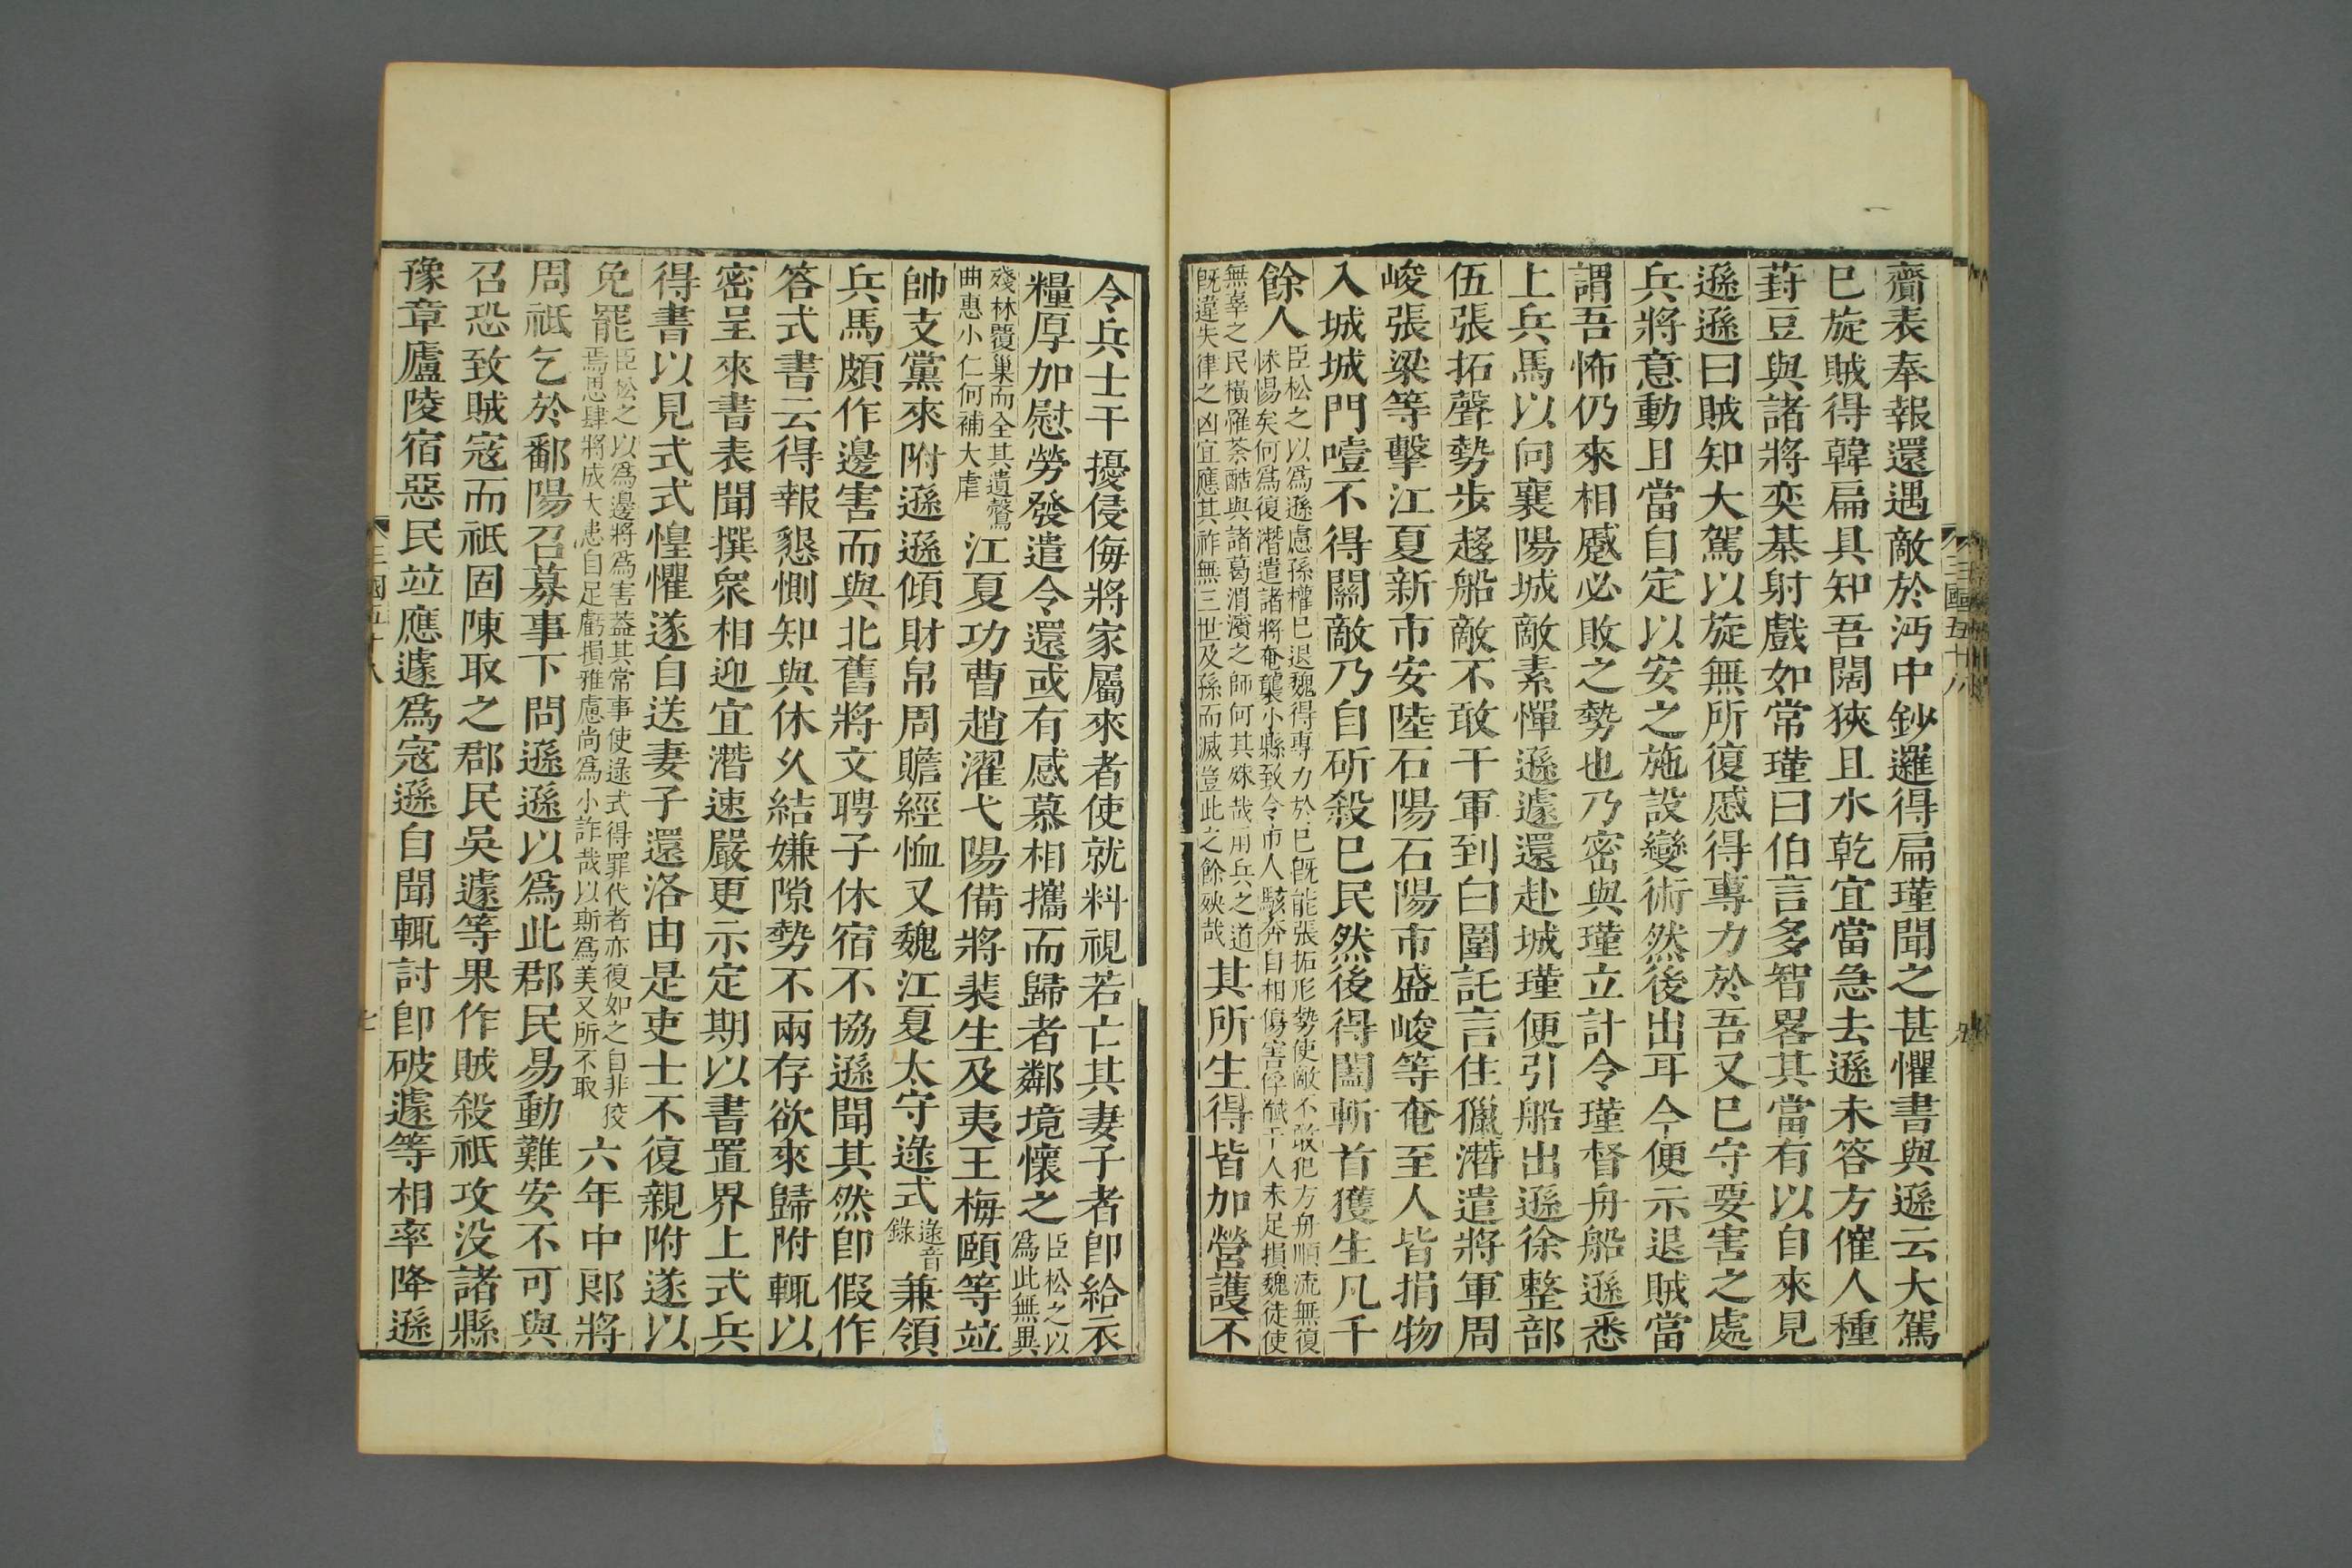 三國五十八
齎表奉報還遇敵於沔中鈔邏得扁瑾聞之甚懼書與遜云大駕
巳旋賊得韓扁具知吾闊狹且水乾宜當急去遜未答方催人種
葑豆與諸將奕棊射戲如常瑾曰伯言多智畧其當有以自來見
遜遜曰賊知大駕以旋無所復慼得專力於吾又巳守要害之處
兵將意動且當自定以安之施設變術然後出耳今便示退賊當
謂吾怖仍來相蹙必敗之勢也乃密與瑾立計令瑾督舟船遜悉
上兵馬以向襄陽城敵素憚遜遽還赴城瑾便引船出遜徐整部
伍張拓聲勢步趨船敵不敢干軍到白圍託言住獵潛遣將軍周
峻張梁等擊江夏新市安陸石陽石陽市盛峻等奄至人皆捐物
入城城門噎不得關敵乃自斫殺巳民然後得闔斬首獲生凡千
餘人
臣松之以爲遜慮孫權巳退魏得專力於巳旣能張拓形勢使敵不敢犯方舟順流無復
怵惕矣何爲復潛遣諸將奄襲小縣致令市人駭奔自相傷害俘馘千人未足損魏徒使
無辜之民橫罹荼酷與諸葛渭濱之師何其殊哉用兵之道
旣違失律之凶宜應其祚無三世及孫而滅豈此之餘殃哉
其所生得皆加營護不
令兵士干擾侵侮將家屬來者使就料視若亡其妻子者卽給衣
糧厚加慰勞發遣令還或有感慕相攜而歸者鄰境懷之
臣松之以
爲此無異
殘林覆巢而全其遺鷇
曲惠小仁何補大虐
江夏功曹趙濯弋陽備將裴生及夷王梅頤等竝
帥支黨來附遜遜傾財帛周贍經恤又魏江夏太守逯式
逯音
錄
兼領
兵馬頗作邊害而與北舊將文聘子休宿不協遜聞其然卽假作
答式書云得報懇惻知與休久結嫌隙勢不兩存欲來歸附輒以
密呈來書表聞撰衆相迎宜潛速嚴更示定期以書置界上式兵
得書以見式式惶懼遂自送妻子還洛由是吏士不復親附遂以
免罷
臣松之以爲邊將爲害蓋其常事使逯式得罪代者亦復如之自非狡
焉思肆將成大患何足虧損雅慮尚爲小詐哉以斯爲美又所不取
六年中郞將
周祗乞於鄱陽召募事下問遜遜以爲此郡民易動難安不可與
召恐致賊寇而祗固陳取之郡民吳遽等果作賊殺祗攻没諸縣
豫章廬陵宿惡民竝應遽爲寇遜自聞輒討卽破遽等相率降遜
三國五十八
七